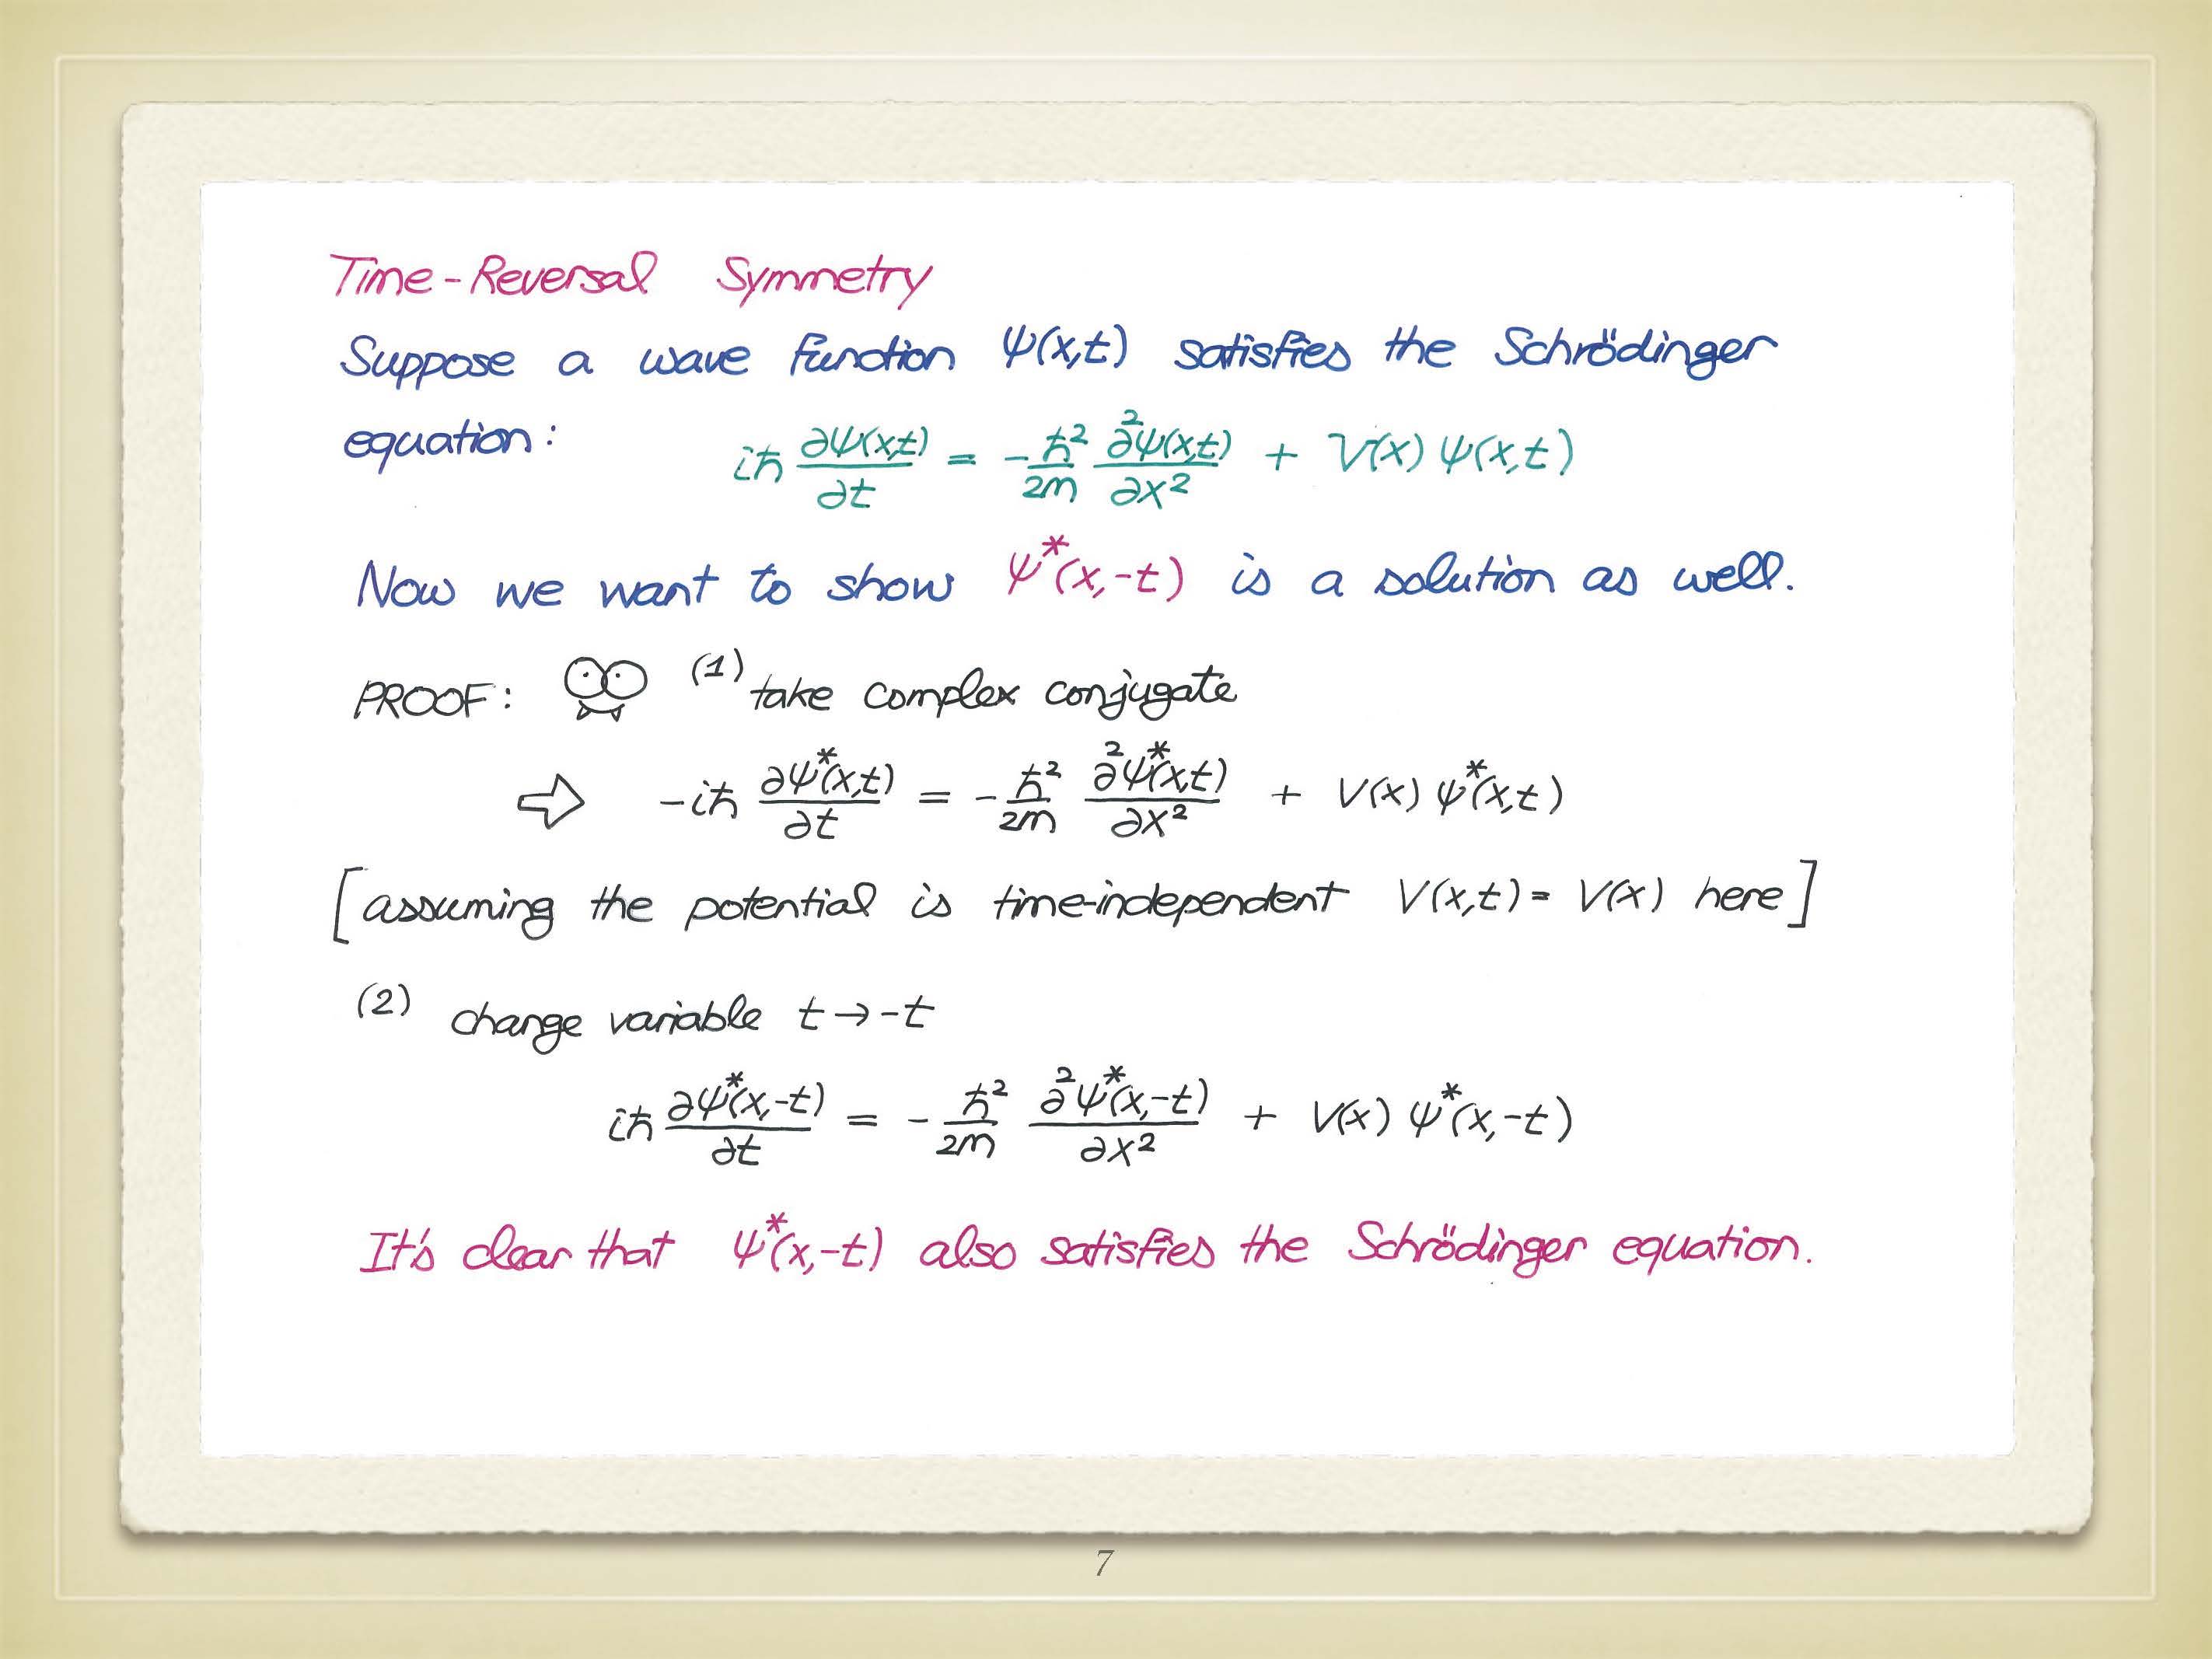 Time-Reversal Symmetry
Suppose a wave function ψ(x,t) satisfies the Schrödinger
equation: iℏ ∂ψ(x,t)/∂t = -ℏ²/2m ∂²ψ(x,t)/∂x² + V(x) ψ(x,t)
Now we want to show ψ*(x,-t) is a solution as well.
PROOF: (1) take complex conjugate
⇨ -iℏ ∂ψ*(x,t)/∂t = -ℏ²/2m ∂²ψ*(x,t)/∂x² + V(x) ψ*(x,t)
[assuming the potential is time-independent V(x,t) = V(x) here]
(2) change variable t → -t
iℏ ∂ψ*(x,-t)/∂t = -ℏ²/2m ∂²ψ*(x,-t)/∂x² + V(x) ψ*(x,-t)
It's clear that ψ*(x,-t) also satisfies the Schrödinger equation.
7